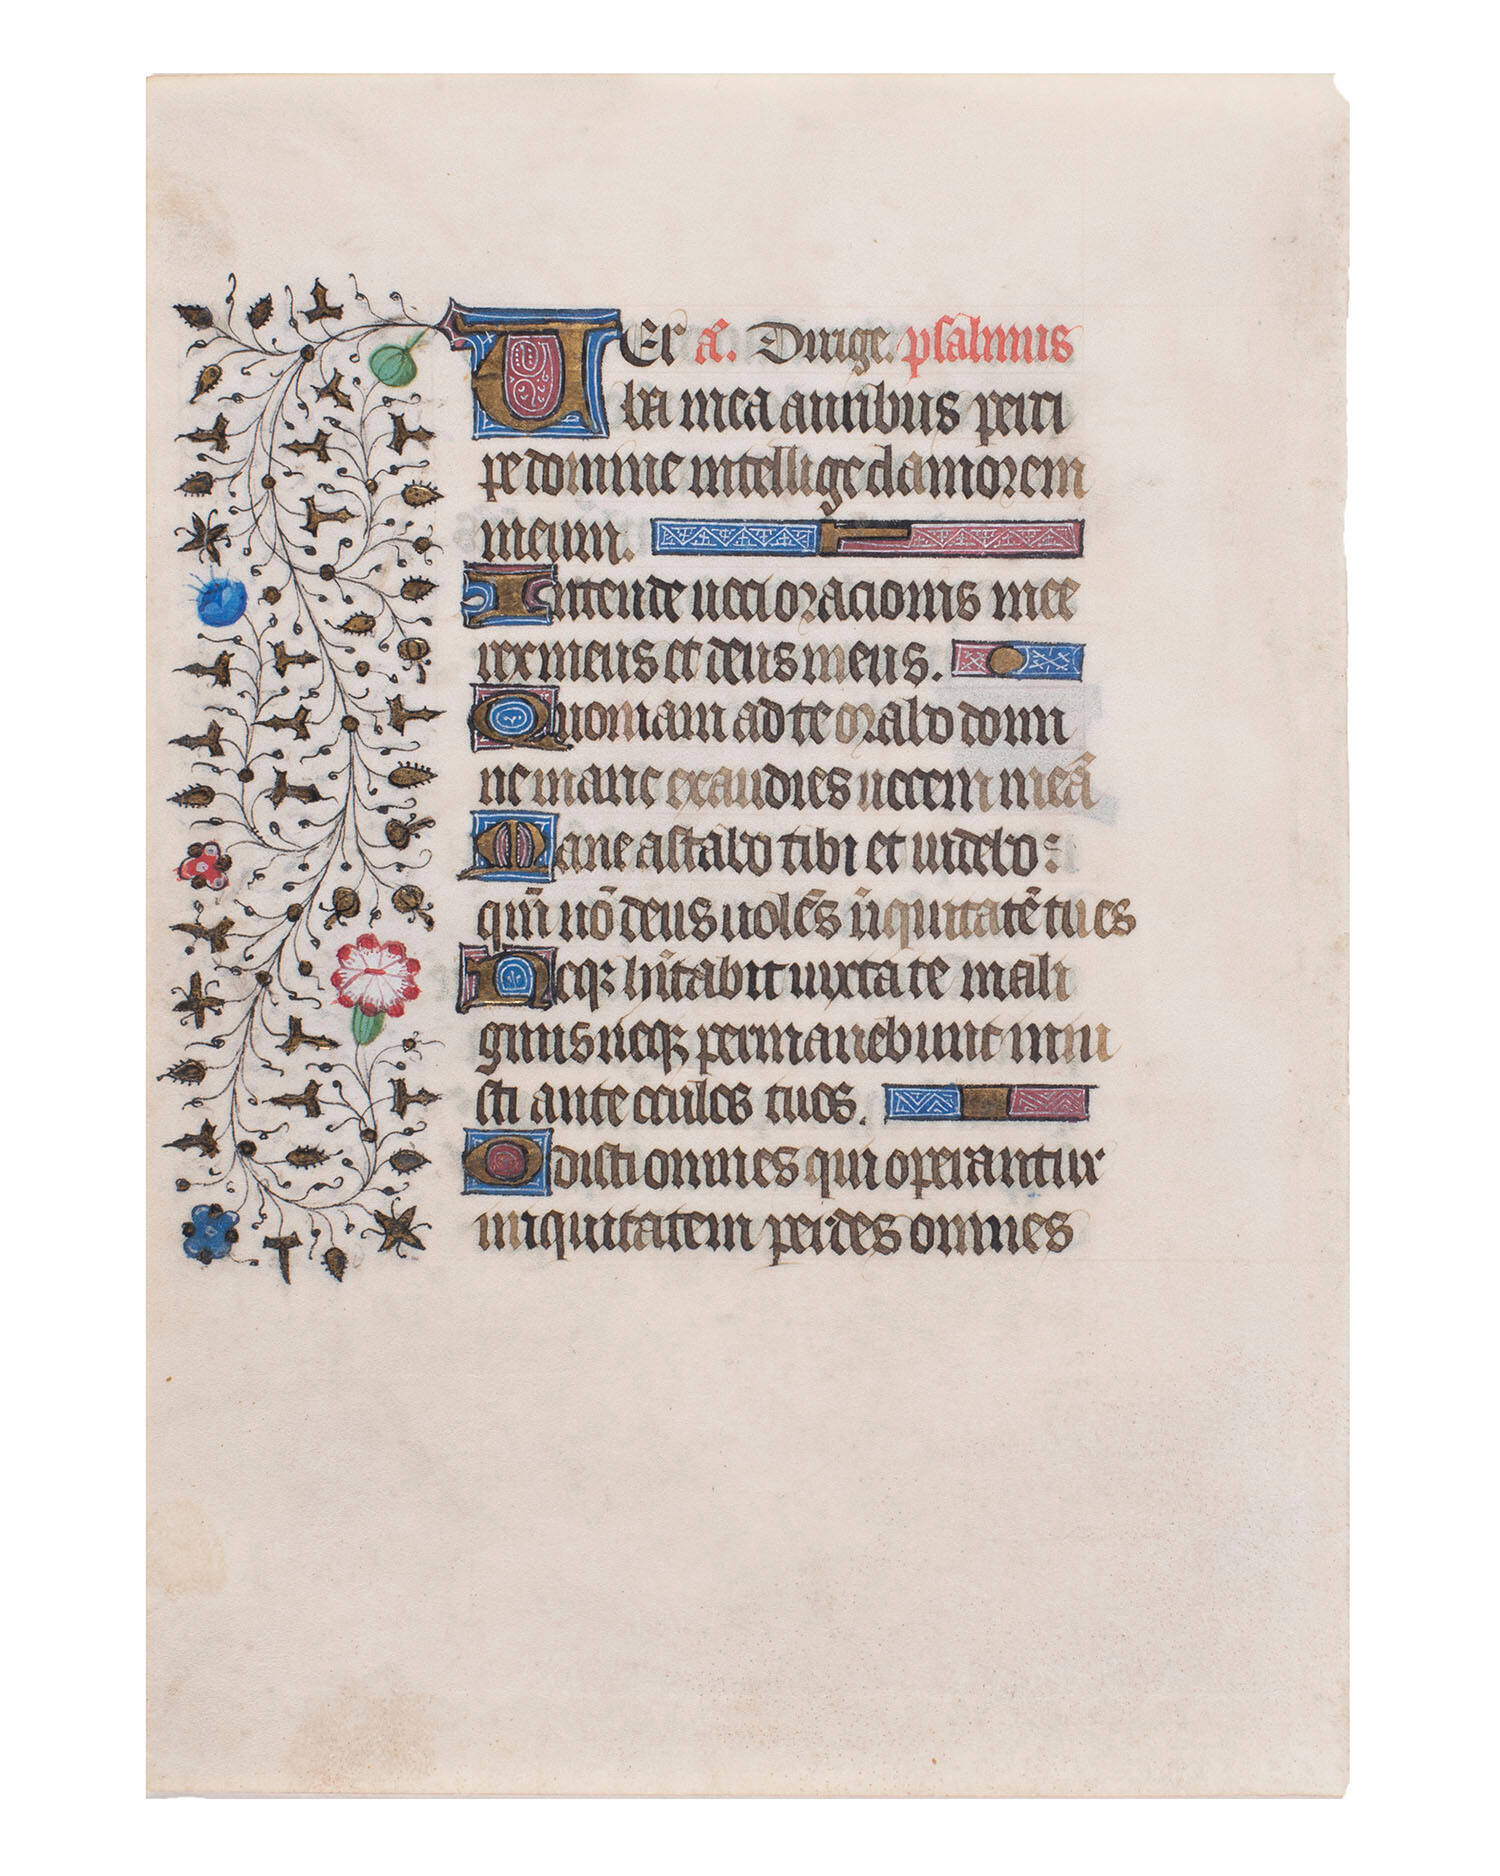 VEr a͞. Dirige. psalmus
ba mea auribus perci
pe domine intellige clamorem
meum.
Intende uoci oracionis mee
rex meus et deus meus.
Quoniam ad te orabo domi
ne mane exaudies uocem meā
Mane astabo tibi et uidebo:
qm̄ nō deus uolēs īiquitatē tu es
Neqꝫ hītabit iuxta te mali
gnus neqꝫ permanebunt iniu
sti ante oculos tuos.
Odisti omnes qui operantur
iniquitatem perdes omnes